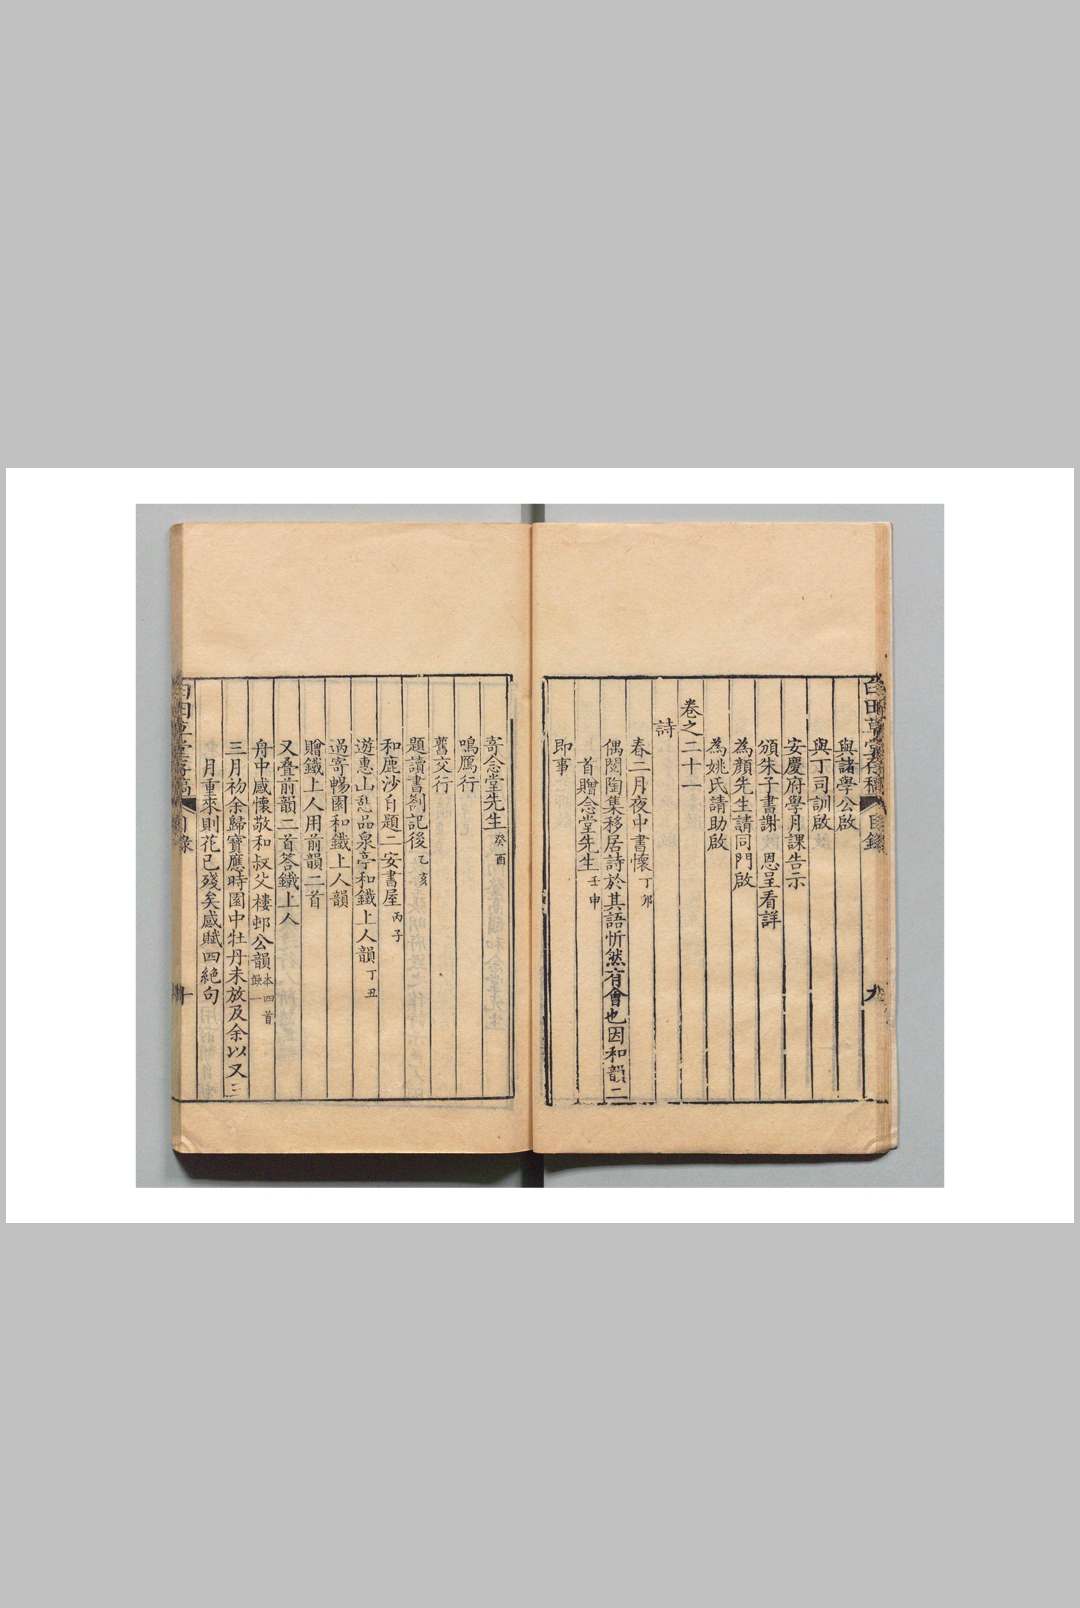 白田草堂存稿 目錄 九
與諸學公啟
與丁司訓啟
安慶府學月課告示
頒朱子書謝恩呈看詳
為顏先生請同門啟
為姚氏請助啟
卷之二十一
詩
春二月夜中書懷丁卯
偶閱陶集移居詩於其語忻然有會也因和韻二
首贈念堂先生壬申
即事
寄念堂先生癸酉
鳴鴈行
舊文行
題讀書劄記後乙亥
和鹿沙自題二安書屋丙子
遊惠山憇品泉亭和鐵上人韻丁丑
過寄暢園和鐵上人韻
贈鐵上人用前韻二首
又叠前韻二首答鐵上人
舟中感懷敬和叔父樓邨公韻本四首缺一
三月初余歸寶應時園中牡丹未放及余以又三
月重來則花已殘矣感賦四絕句
白田草堂存稿 目錄 十